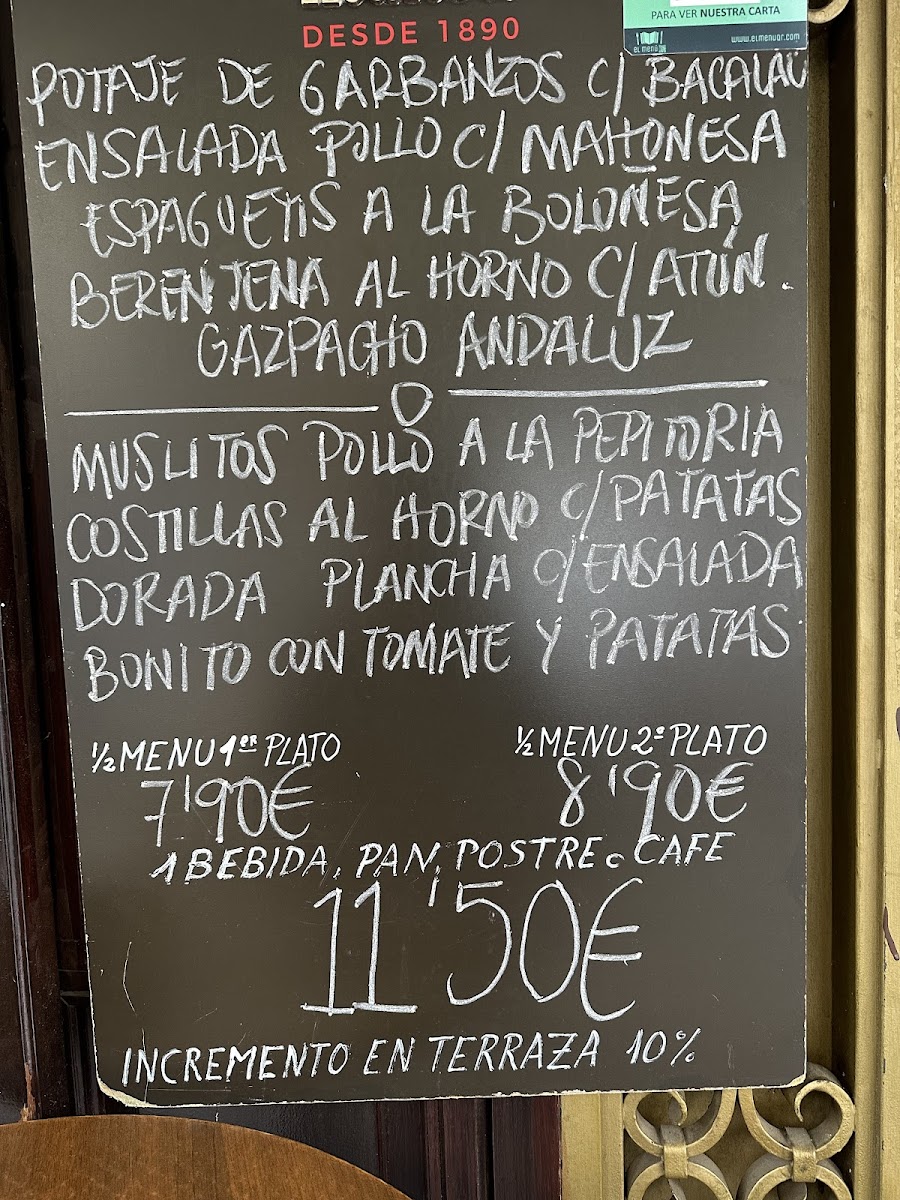 DESDE 1890
PARA VER NUESTRA CARTA
EL MENÚ
www.elmenuqr.com
POTAJE DE GARBANZOS C/ BACALAO
ENSALADA POLLO C/ MAHONESA
ESPAGUETIS A LA BOLOÑESA
BERENJENA AL HORNO C/ ATÚN.
GAZPACHO ANDALUZ
MUSLITOS POLLO A LA PEPITORIA
COSTILLAS AL HORNO C/ PATATAS
DORADA PLANCHA C/ ENSALADA
BONITO CON TOMATE Y PATATAS
½ MENU 1ER PLATO
7'90€
½ MENU 2º PLATO
8'90€
1 BEBIDA, PAN, POSTRE o CAFE
11'50€
INCREMENTO EN TERRAZA 10%